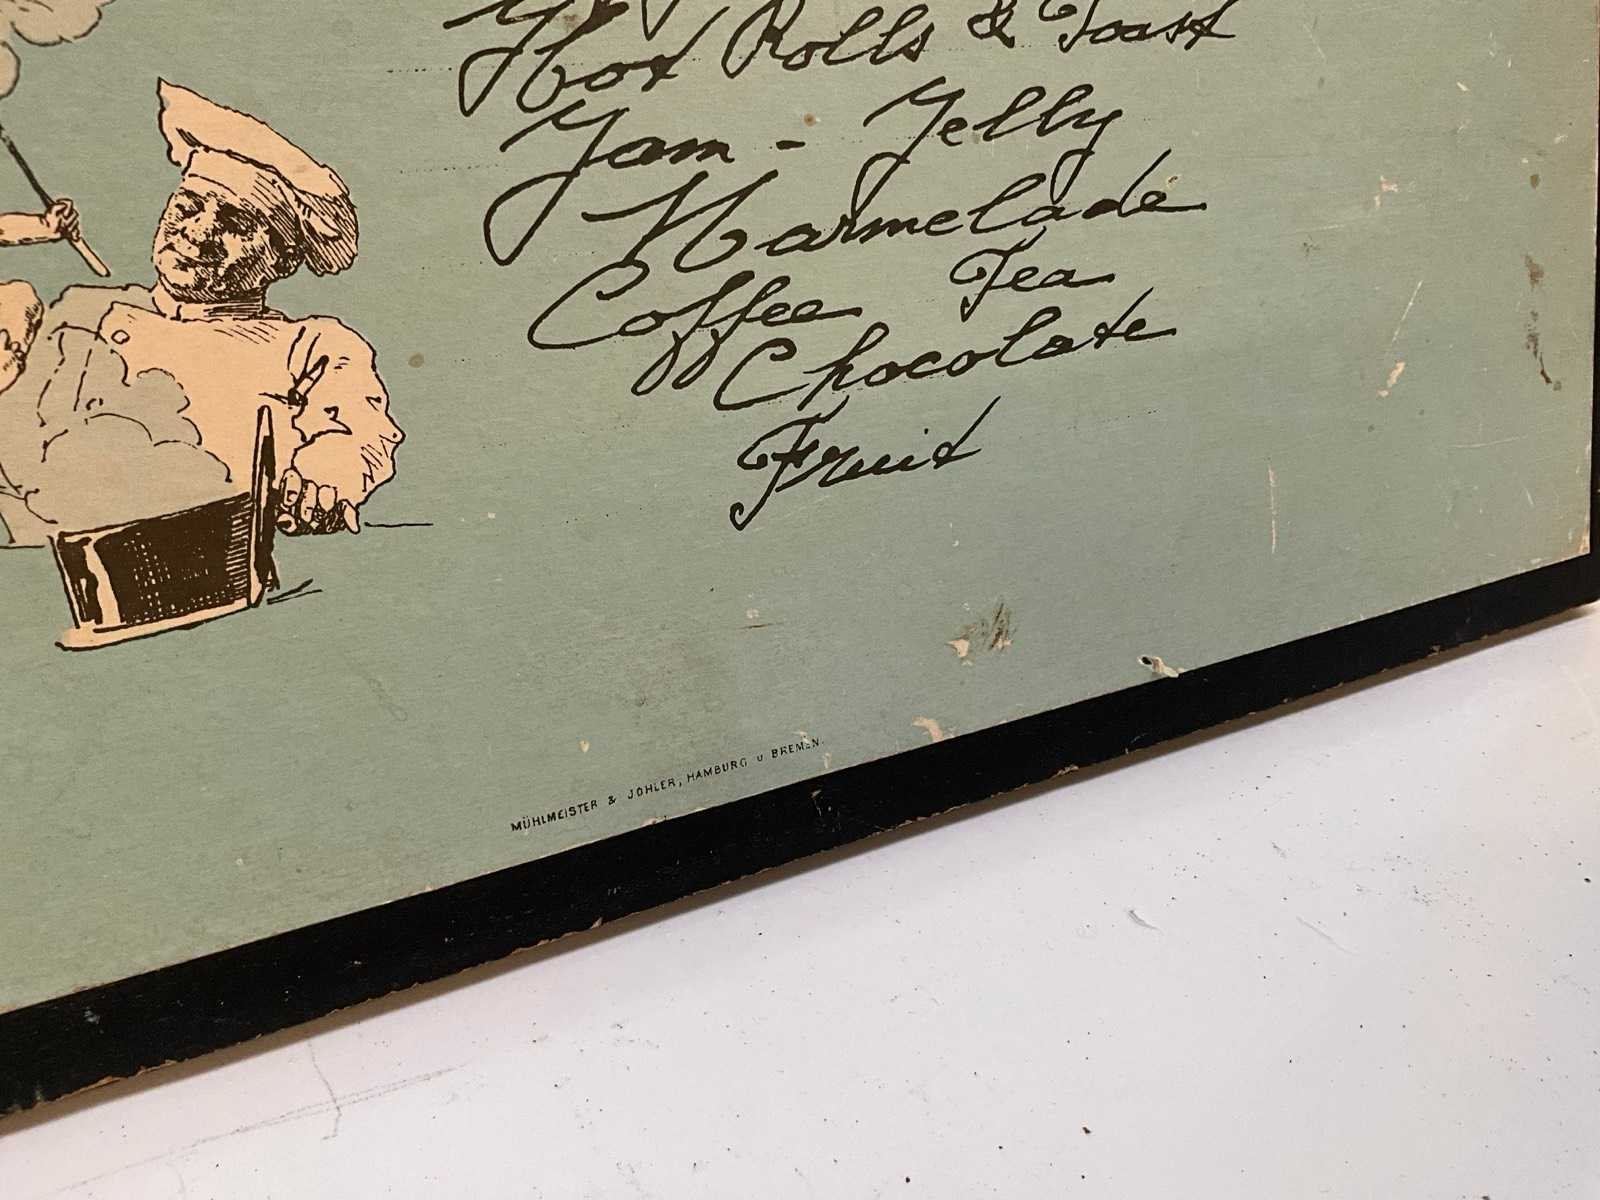 Hot Rolls & Toast
Jam - Jelly
Marmelade
Coffee Tea
Chocolate
Fruit
MÜHLMEISTER & JOHLER, HAMBURG u BREMEN.